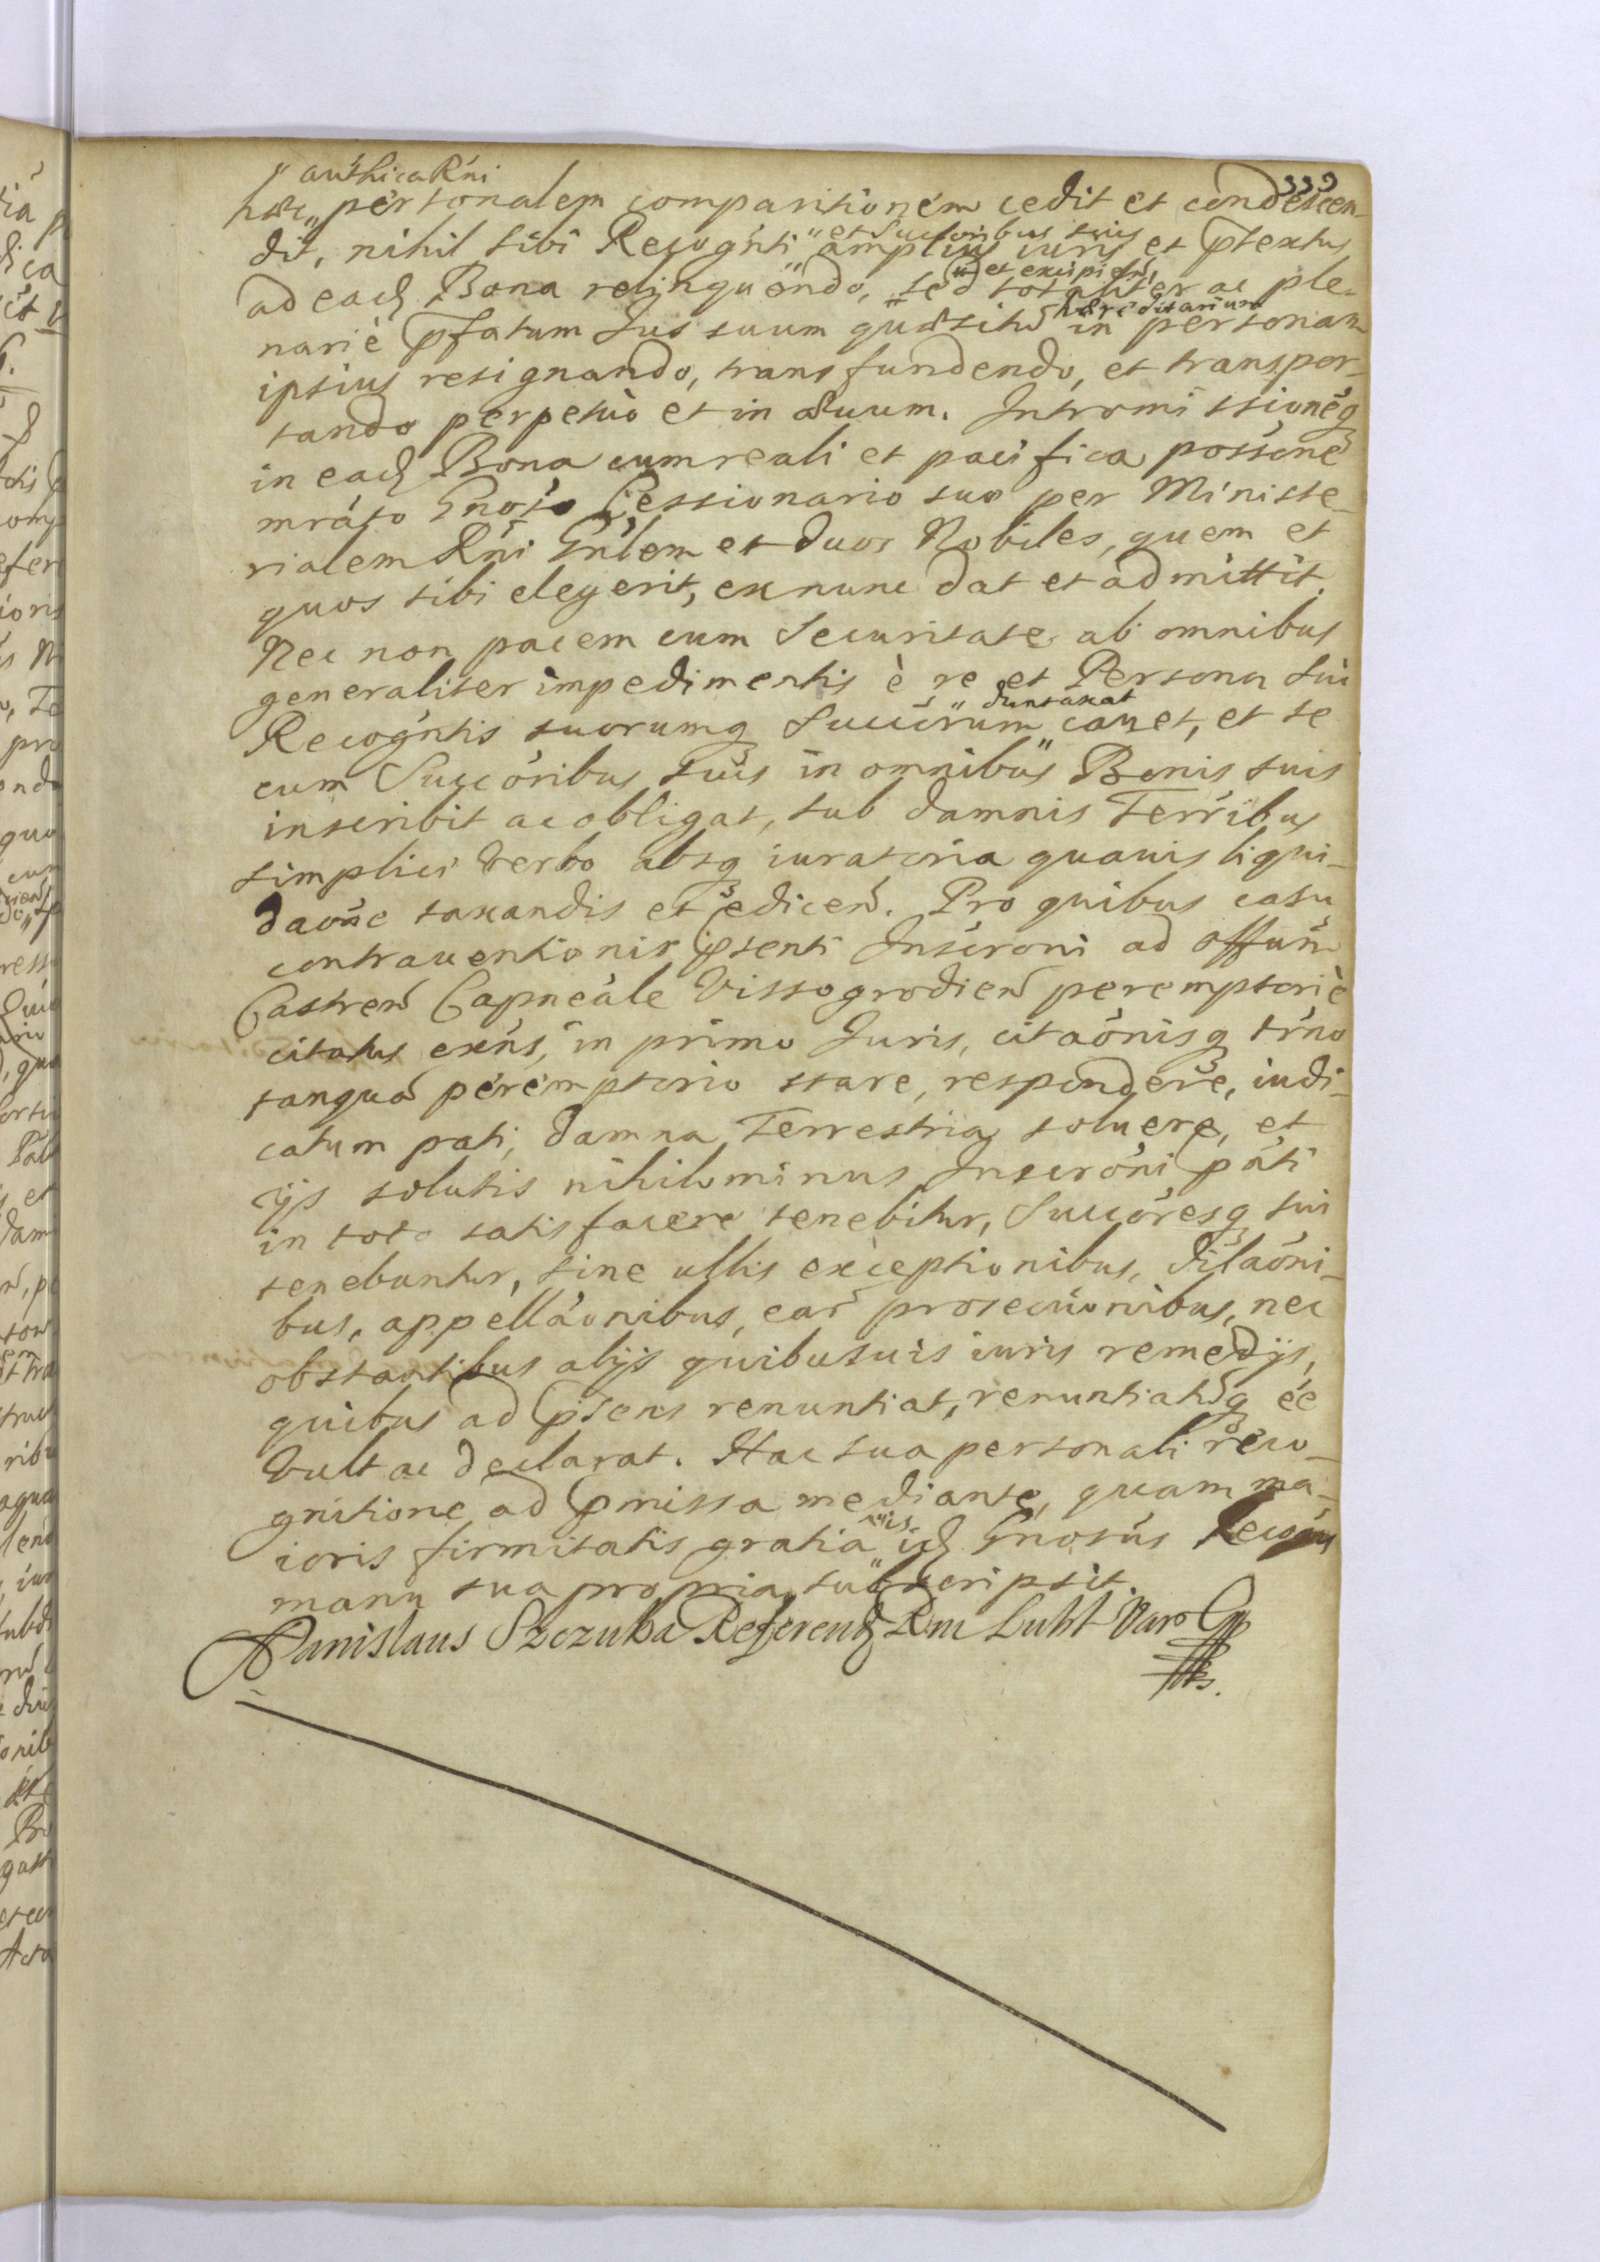 authica Rńi
339
hac personalem comparitionem cedit et condescen-
et Succoribus suis
dit, nihil sibi Recogńti amplius iuris et ptextus
et excipień
ad ead Bona relinquendo, sed totaliter ac ple-
hæreditarium
nariè pfatum Jus suum quæsitũ in personam
ipsius resignando, transfundendo, et transpor-
tando perpetuò et in æuum. Intromissionẽq
in ead Bona cum reali et pacifica possone
mrato Gnoso Cessionario suo per Ministe-
rialem Rńi Gnlem et duos Nobiles, quem et
quos sibi elegerit, ex nunc dat et admittit.
Nec non pacem cum Securitate ab omnibus
generaliter impedimentis è re et Persona sui
duntaxat
Recogńtis suorumq Succorum cauet, et se
cum Succoribus suis in omnibus Bonis suis
inscribit ac obligat, sub damnis Terribus
simplici verbo absq iuratoria quauis liqui-
daone taxandis et edicen. Pro quibus casu
contrauentionis psenti Inscroni ad offum
Castren Capneale Vissogrodien peremptoriè
citatus exńs, in primo Juris, citaonisq trno
tanquã peremptorio stare, respondere, iudi-
catum pati, damna Terrestria soluere, et
ijs solutis nihilominus Inscroni pńti
in toto satisfacere tenebitur, Succoresq sui
tenebuntur, sine ullis exceptionibus, dilaoni-
bus, appellaonibus, eaŕ prosecuonibus, nec
obstantibus alijs quibusuis iuris remedijs,
quibus ad psens renuntiat, renuntiatũq ee
vult ac declarat. Hac sua personali reco-
gnitione ad pmissa mediante, quam ma-
ioris firmitatis gratia id Gnosus Recogns
manu sua propria subscripsit.
Stanislaus Szczuka Referend Rni